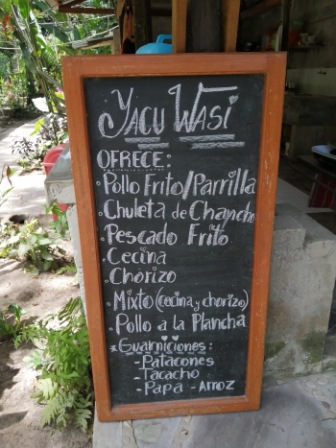 YACU WASI
OFRECE:
· Pollo Frito/Parrilla
· Chuleta de Chancho
· Pescado Frito
· Cecina
· Chorizo
· Mixto (cecina y chorizo)
· Pollo a la Plancha
* Guarniciones:
- Patacones
- Tacacho
- Papa - Arroz